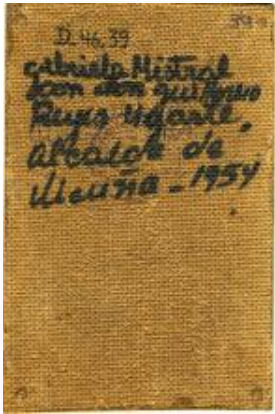 39
D.46.39
Gabriela Mistral
con don Guillermo
Reyes Ugarte,
Alcalde de
Vicuña - 1954